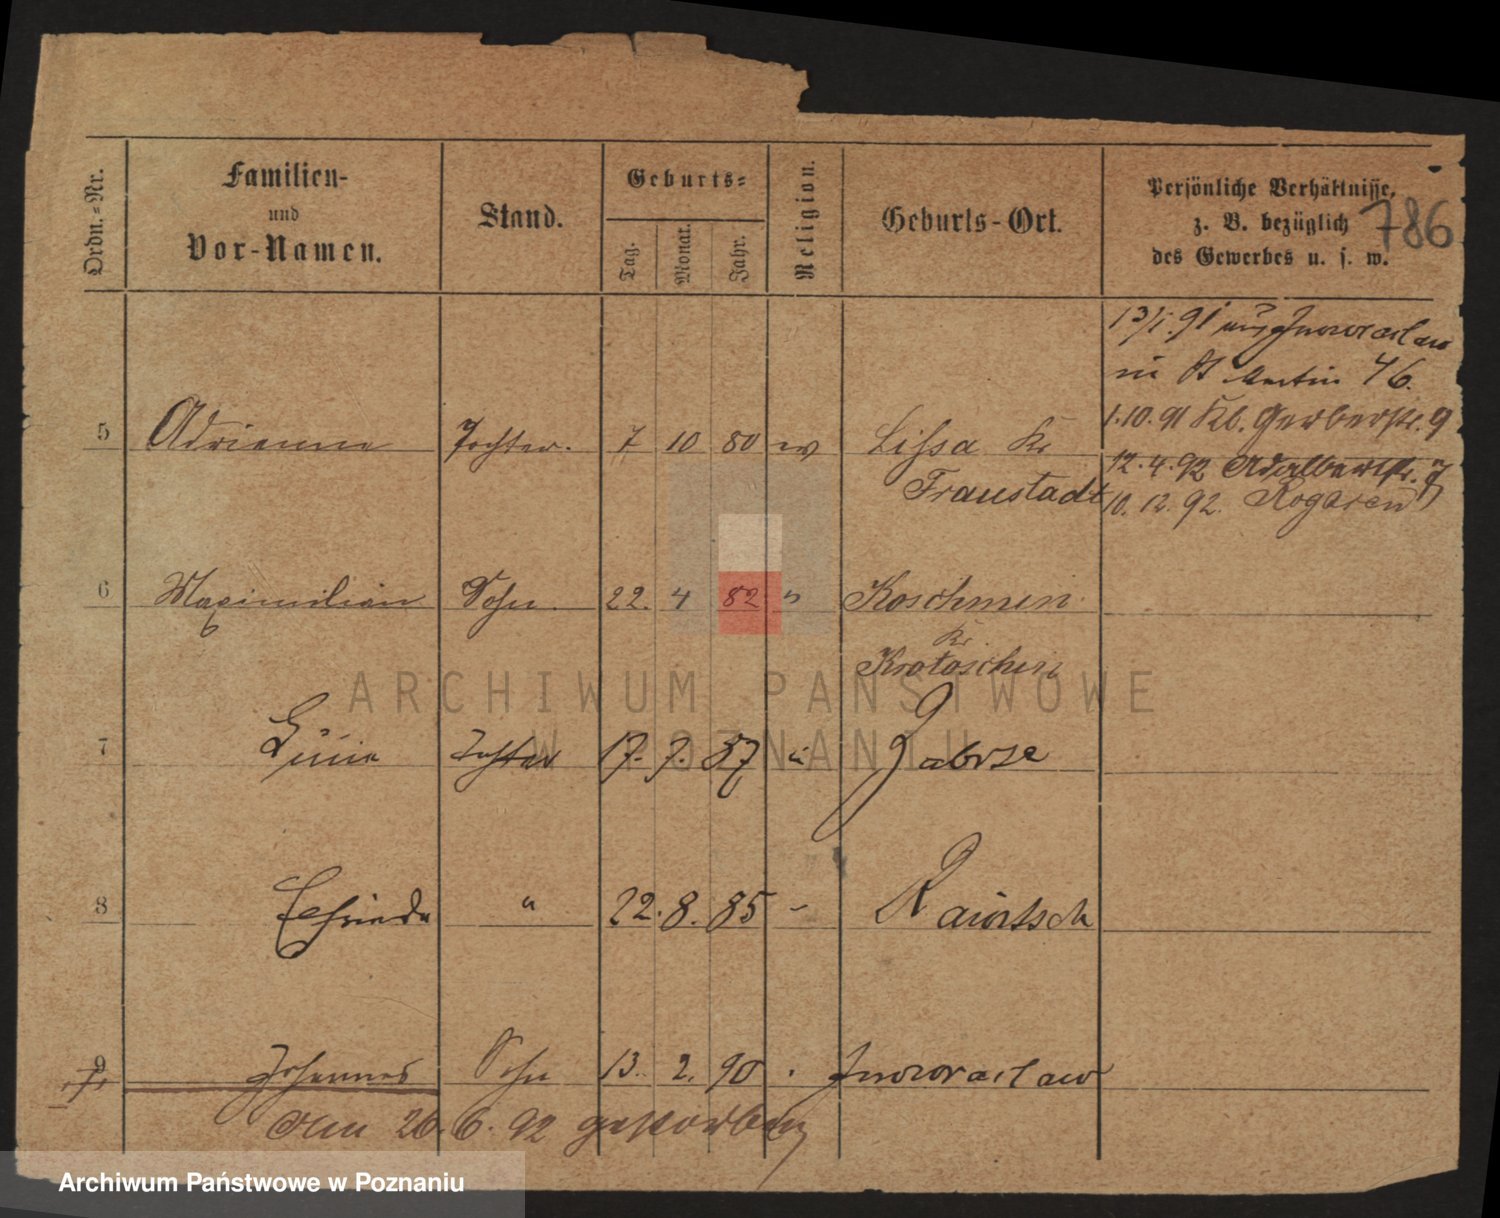 Ordn.=Nr.
Familien-
und
Vor-Namen.
Stand.
Geburts=
Tag.
Monat.
Jahr.
Religion.
Geburts-Ort.
Persönliche Verhältnisse,
z. B. bezüglich
des Gewerbes u. s. w.
786
13/1. 91 aus Inowraclaw
in St Martin 46.
1.10.91 Kl. Gerberstr. 9
12.4.92 Adalbertstr.
10. 12. 92. Rogasen
5 Adrienne Tochter. 7 10 80 Lissa Kr
Fraustadt
6 Maximilian Sohn 22. 4 82 " Koschmin
Kr.
Krotoschin
7 Tochter 17. 7. 87 " Zabrze
8 " 22. 8. 85 Rawitsch
9 Johannes Sohn 13. 2. 90 Inowraclaw
Am 26. 6. 92 gestorben
ARCHIWUM PAŃSTWOWE
W POZNANIU
Archiwum Państwowe w Poznaniu